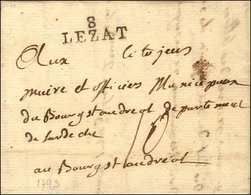 8
LEZAT
Aux citojens
maire et officiers Municipaux
du Bourg st andreol departement
de lardeche
au Bourg st andreol
1793